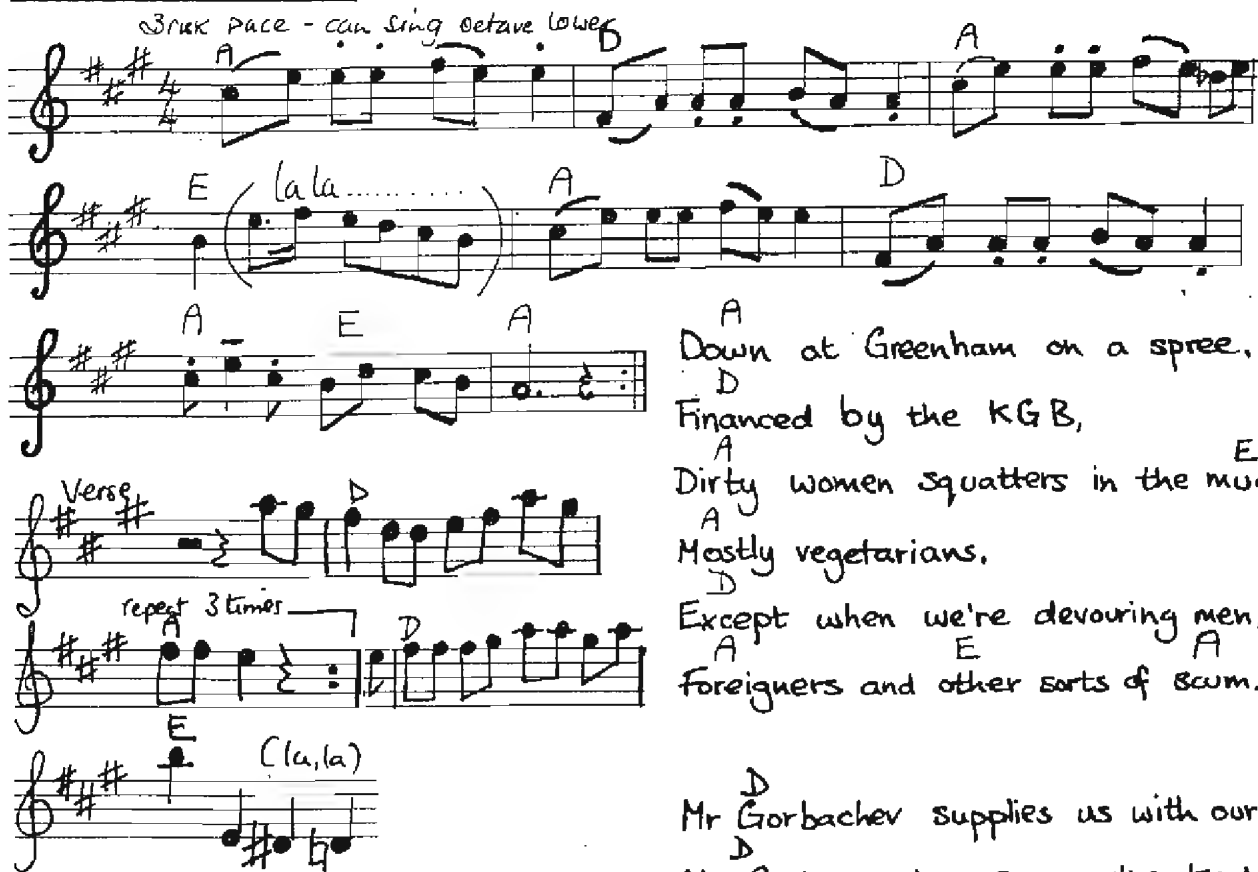 Brisk pace - can sing octave lower
A D A
4
4
E (la la..........) A D
A E A
Verse
D
repeat 3 times
A D
E (la, la)
A
Down at Greenham on a spree.
D
Financed by the KGB,
A E
Dirty women squatters in the
A
Mostly vegetarians.
D
Except when we're devouring men,
A E A
Foreigners and other sorts of scum.
D
Mr Gorbachev supplies us with our
D